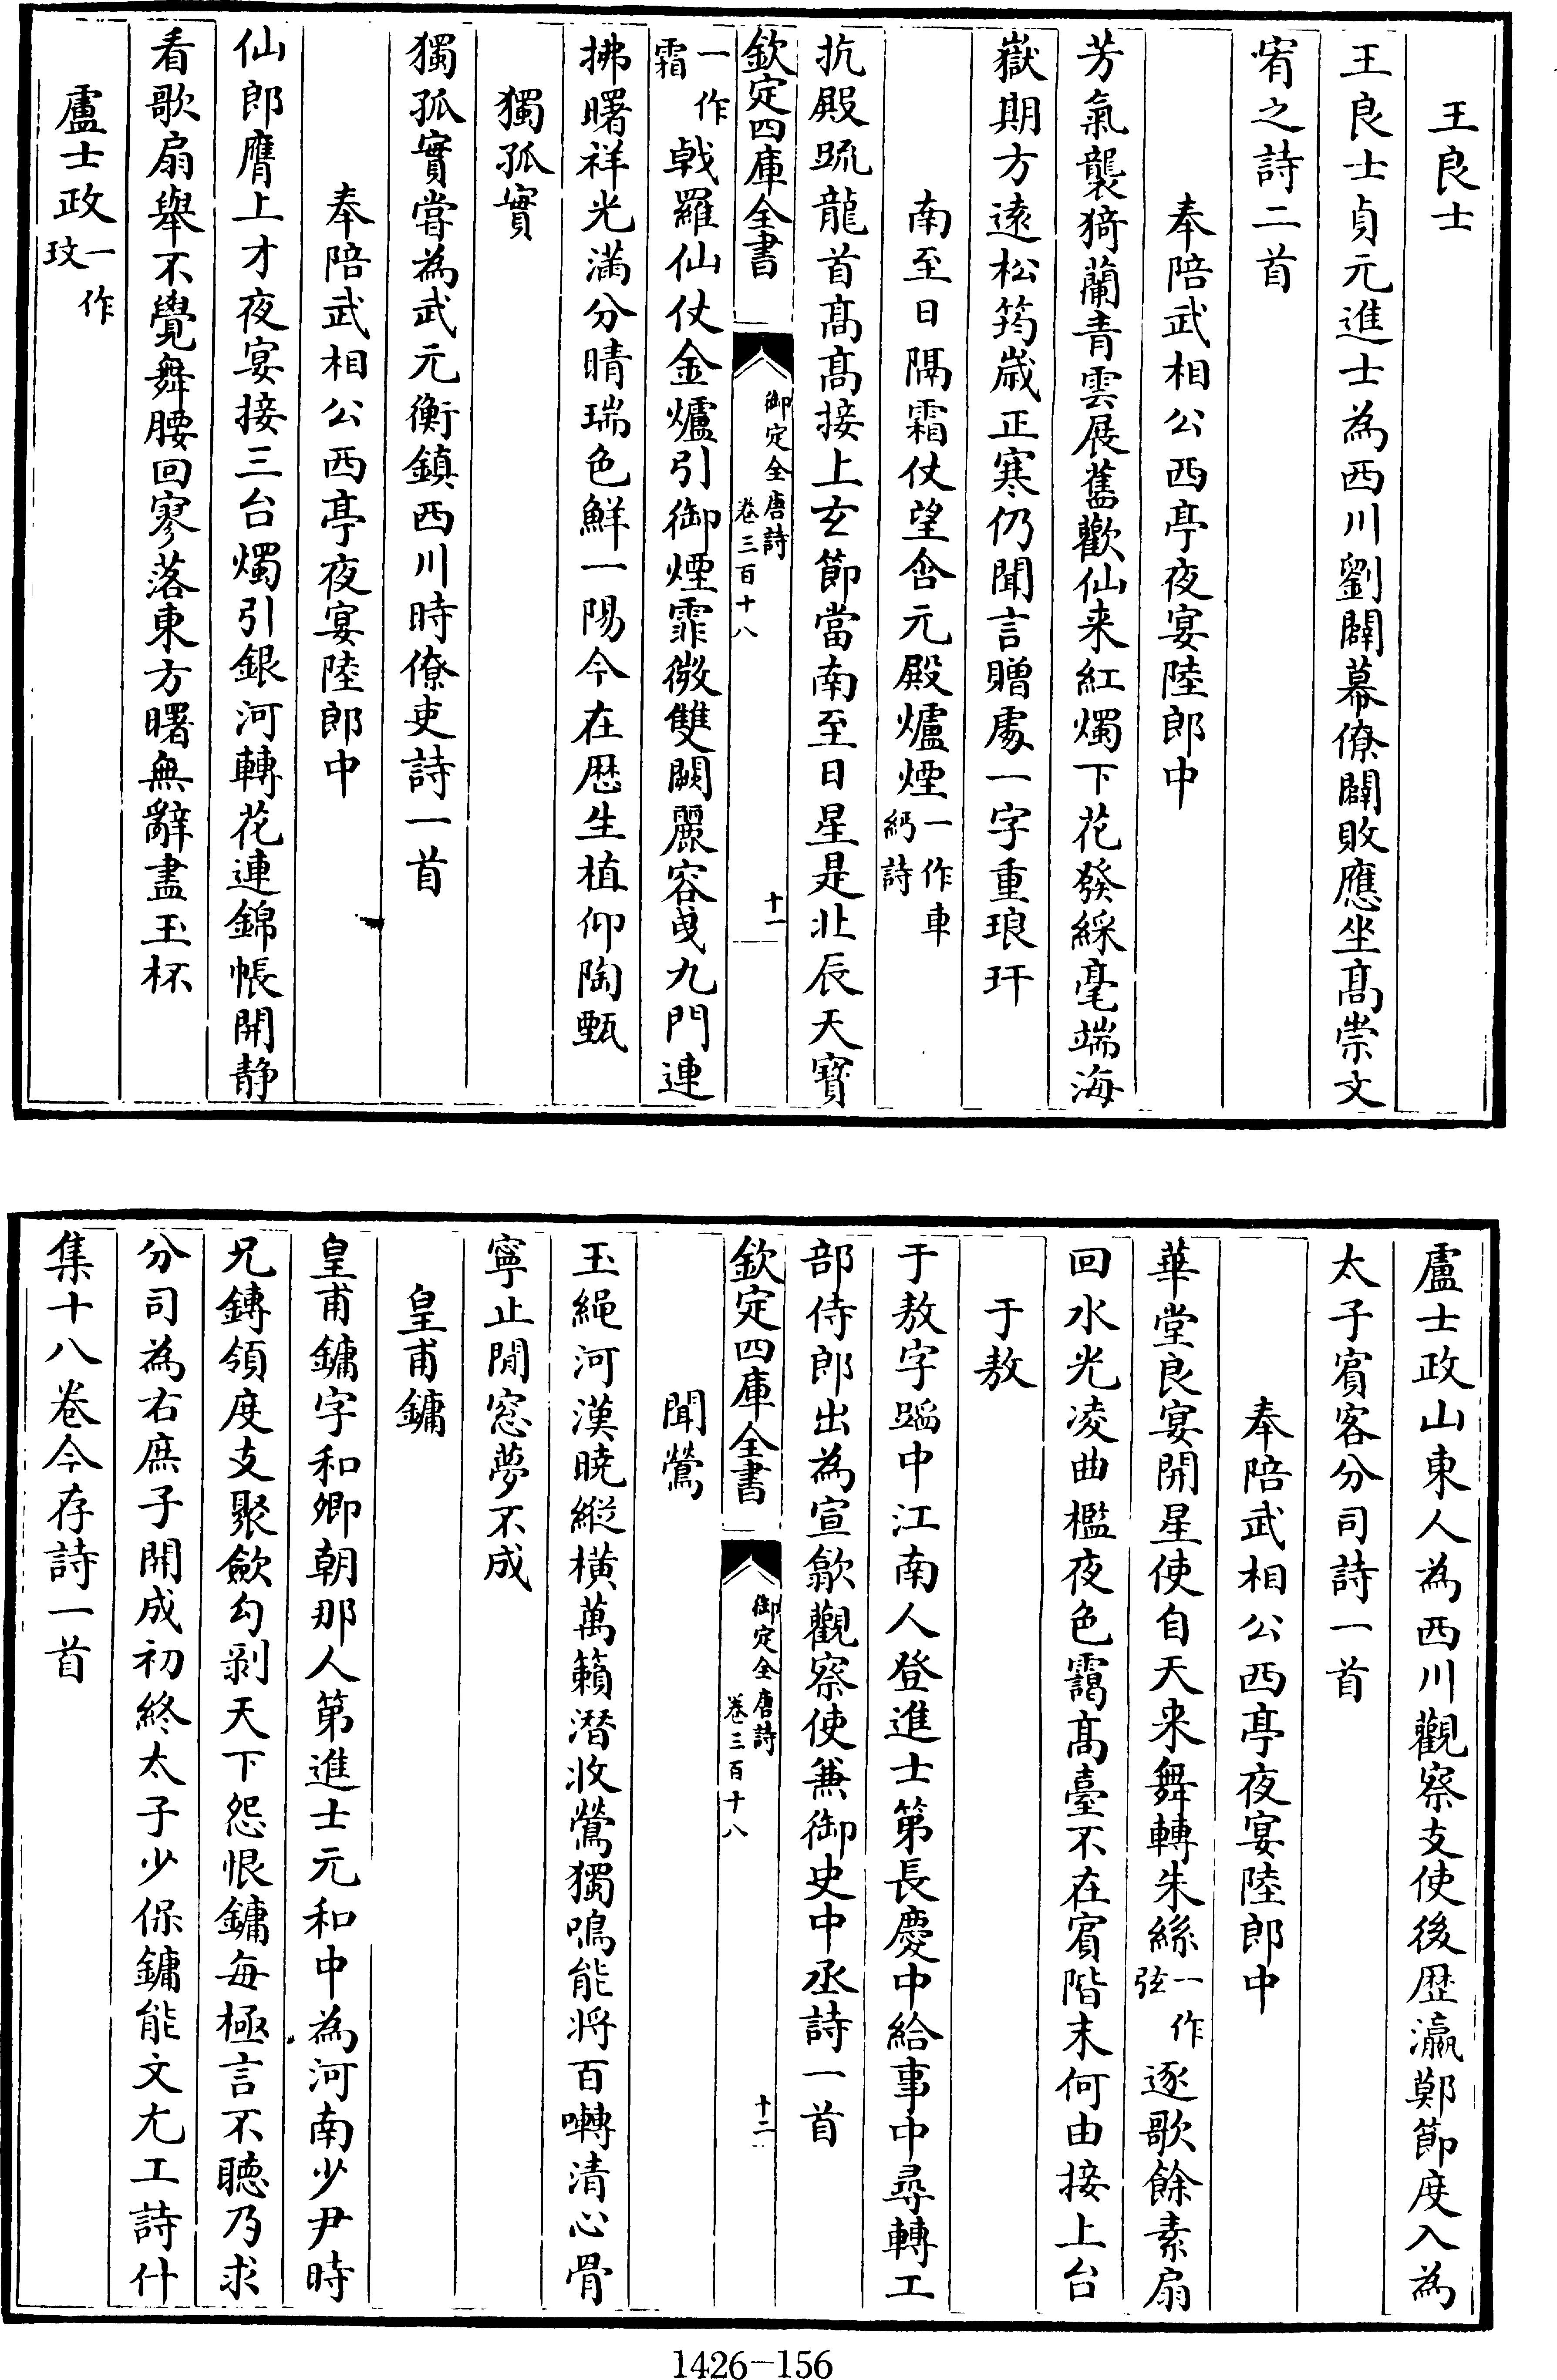 王良士
王良士貞元進士為西川劉闢幕僚闢敗應坐髙崇文
宥之詩二首
奉陪武相公西亭夜宴陸郎中
芳氣襲猗蘭青雲展舊歡仙来紅燭下花發綵毫端海
嶽期方逺松筠嵗正寒仍聞言贈處一字重琅玕
南至日隔霜仗望含元殿爐煙一作車紙詩
抗殿疏龍首髙髙接上𤣥節當南至日星是北辰天寶
欽定四庫全書
御定全唐詩
卷三百十八
十一
一作霜戟羅仙仗金爐引御煙霏微雙闕麗容曵九門連
拂曙祥光滿分晴瑞色鮮一陽今在厯生植仰陶甄
獨孤實
獨孤實嘗為武元衡鎮西川時僚吏詩一首
奉陪武相公西亭夜宴陸郎中
仙郎膺上才夜宴接三台燭引銀河轉花連錦帳開静
看歌扇舉不覺舞腰回寥落東方曙無辭盡玉杯
盧士政一作玫
盧士政山東人為西川觀察支使後厯瀛鄭節度入為
太子賓客分司詩一首
奉陪武相公西亭夜宴陸郎中
華堂良宴開星使自天来舞轉朱絲一作弦逐歌餘素扇
回水光凌曲檻夜色靄髙臺不在賓階末何由接上台
于敖
于敖字蹈中江南人登進士第長慶中給事中尋轉工
部侍郎出為宣歙觀察使兼御史中丞詩一首
欽定四庫全書
御定全唐詩
卷三百十八
十二
聞鶯
玉繩河漢曉縱橫萬籟潛收鶯獨鳴能將百囀清心骨
寧止閒窓夢不成
皇甫鏞
皇甫鏞字和卿朝那人第進士元和中為河南少尹時
兄鎛領度支聚歛勾剥天下怨恨鏞每極言不聽乃求
分司為右庶子開成初終太子少保鏞能文尤工詩什
集十八卷今存詩一首
1426-156